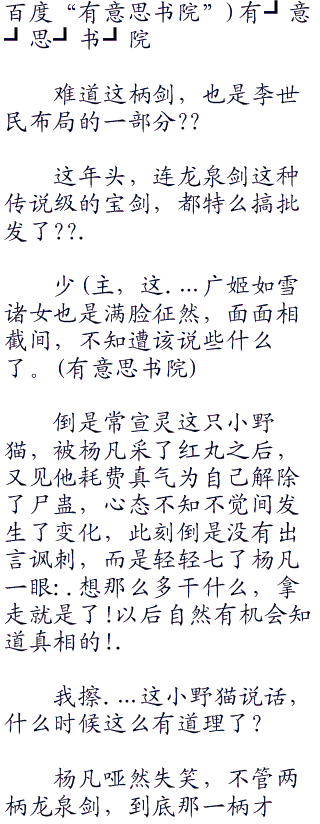 百度“有意思书院”)有┛意
┛思┛书┛院
难道这柄剑，也是李世
民布局的一部分??
这年头，连龙泉剑这种
传说级的宝剑，都特么搞批
发了??.
少(主，这....广姬如雪
诸女也是满脸征然，面面相
截间，不知遭该说些什么
了。(有意思书院)
倒是常宣灵这只小野
猫，被杨凡采了红丸之后，
又见他耗费真气为自己解除
了尸蛊，心态不知不觉间发
生了变化，此刻倒是没有出
言讽刺，而是轻轻七了杨凡
一眼:.想那么多干什么，拿
走就是了!以后自然有机会知
道真相的!.
我擦....这小野猫说话，
什么时候这么有道理了?
杨凡哑然失笑，不管两
柄龙泉剑，到底那一柄才